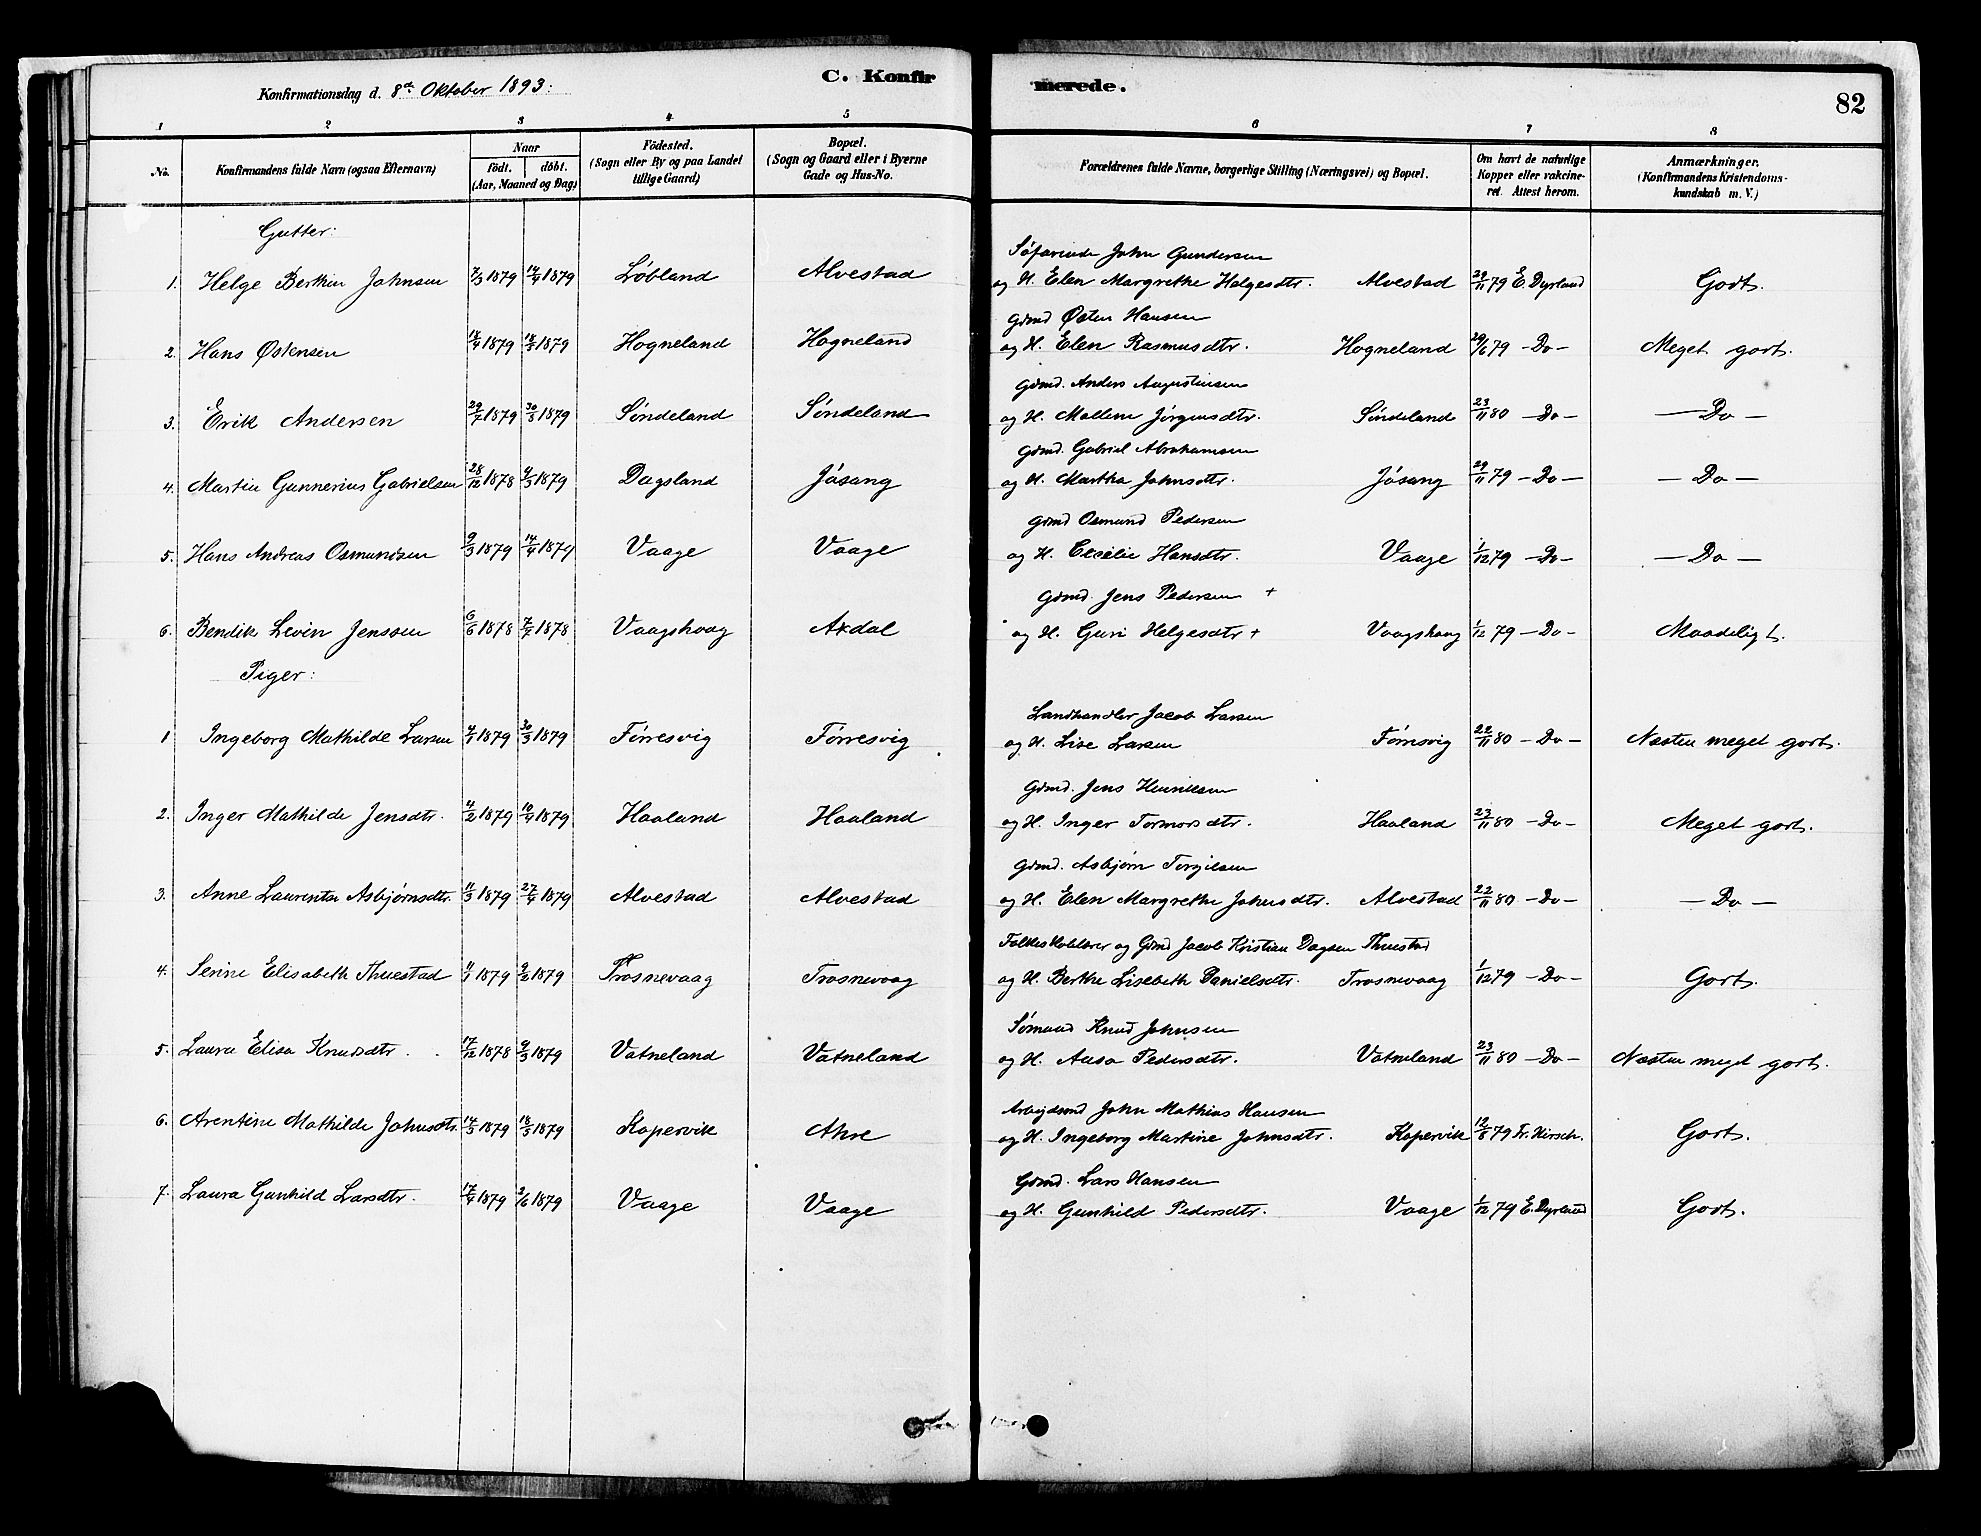 C. Konfirmerede.
82
Konfirmationsdag d. 8de Oktober 1893.
1 2 3 4 5 6 7 8
No. Konfirmandens fulde Navn (ogsaa Efternavn) Naar født. døbt. (Aar, Maaned og Dag) Födested. (Sogn eller By og paa Landet tillige Gaard.) Bopæl. (Sogn og Gaard eller i Byerne Gade og Hus-No. Forældrenes fulde Navne, borgerlige Stilling (Næringsvei) og Bopæl. Om havt de naturlige Kopper eller vakcineret. Attest herom. Anmærkninger. (Konfirmandens Kristendomskundskab m. V.)
Gutter:
Søfarende John Gundersen
1. Helge Berthin Johnsen 7/3 1879 14/4 1879 Løbland Alvestad og H. Elen Margrethe Helgesdtr. Alvestad 29/11 79 E. Dyrland Godt.
Gmd Østen Hansen
2. Hans Østensen 14/4 1879 18/5 1879 Hogneland Hogneland og H. Elen Rasmusdtr. Hogneland 29/6 79 – Do – Meget godt.
Gmd. Anders Augustinsen
3. Erik Andersen 29/7 1879 30/8 1879 Søndeland Søndeland og H. Mallene Jørgensdtr. Søndeland 23/11 80 – Do – – Do –
Gmd. Gabriel Abrahamsen
4. Martin Gunnerius Gabrielsen 28/12 1878 9/3 1879 Dagsland Jøsang og H. Martha Johnsdtr. Jøsang 29/11 79 – Do – – Do –
Gmd Osmund Pedersen
5. Hans Andreas Osmundsen 9/3 1879 14/4 1879 Vaage Vaage og H. Cecilie Hansdtr. Vaage 1/12 79 – Do – – Do –
Gmd. Jens Pedersen +
6. Bendik Levin Jenssen 6/6 1878 7/7 1878 Vaagshaag Axdal og H. Guri Helgesdtr + Vaagshaag 1/12 79 – Do – Maadeligt.
Piger:
Landhandler Jacob Larsen
1 Ingeborg Mathilde Larsen 4/1 1879 30/3 1879 Førresvig Førresvig og H. Lise Larsen Førresvig 22/11 80 – Do – Næsten meget godt.
Gmd. Jens Henriksen
2. Inger Mathilde Jensdtr. 4/2 1879 10/4 1879 Haaland Haaland og H. Inger Tormodsdtr. Haaland 23/11 80 – Do – Meget godt.
Gmd. Asbjørn Torgilsen
3. Anne Laurentse Asbjørnsdtr. 11/3 1879 27/4 1879 Alvestad Alvestad og H. Elen Margrethe Johnsdtr. Alvestad 22/11 80 – Do – – Do –
Folkeskolelærer og Gmd Jacob Kristian Dagsen Thuestad
4. Serine Elisabeth Thuestad 4/1 1879 9/2 1879 Trosnevaag Trosnevaag og H. Berthe Lisebeth Danielsdtr. Trosnevaag 1/12 79 – Do – Godt.
Sømand Knud Johnsen
5. Laura Elisa Knudsdtr. 17/12 1878 9/3 1879 Vatneland Vatneland og H. Aasa Pedersdtr. Vatneland 23/11 80 – Do – Næsten meget godt.
Arbejdsmd John Mathias Hansen
6. Arentine Mathilde Johnsdtr. 14/3 1879 18/5 1879 Kopervik Ahre og H. Ingeborg Martine Johnsdtr. Kopervik 12/8 79 Fr. Kirsch. Godt.
Gmd. Lars Hansen
7. Laura Gunhild Larsdtr. 17/4 1879 2/6 1879 Vaage Vaage og H. Gunhild Pedersdtr. Vaage 1/12 79 E. Dyrland Godt.